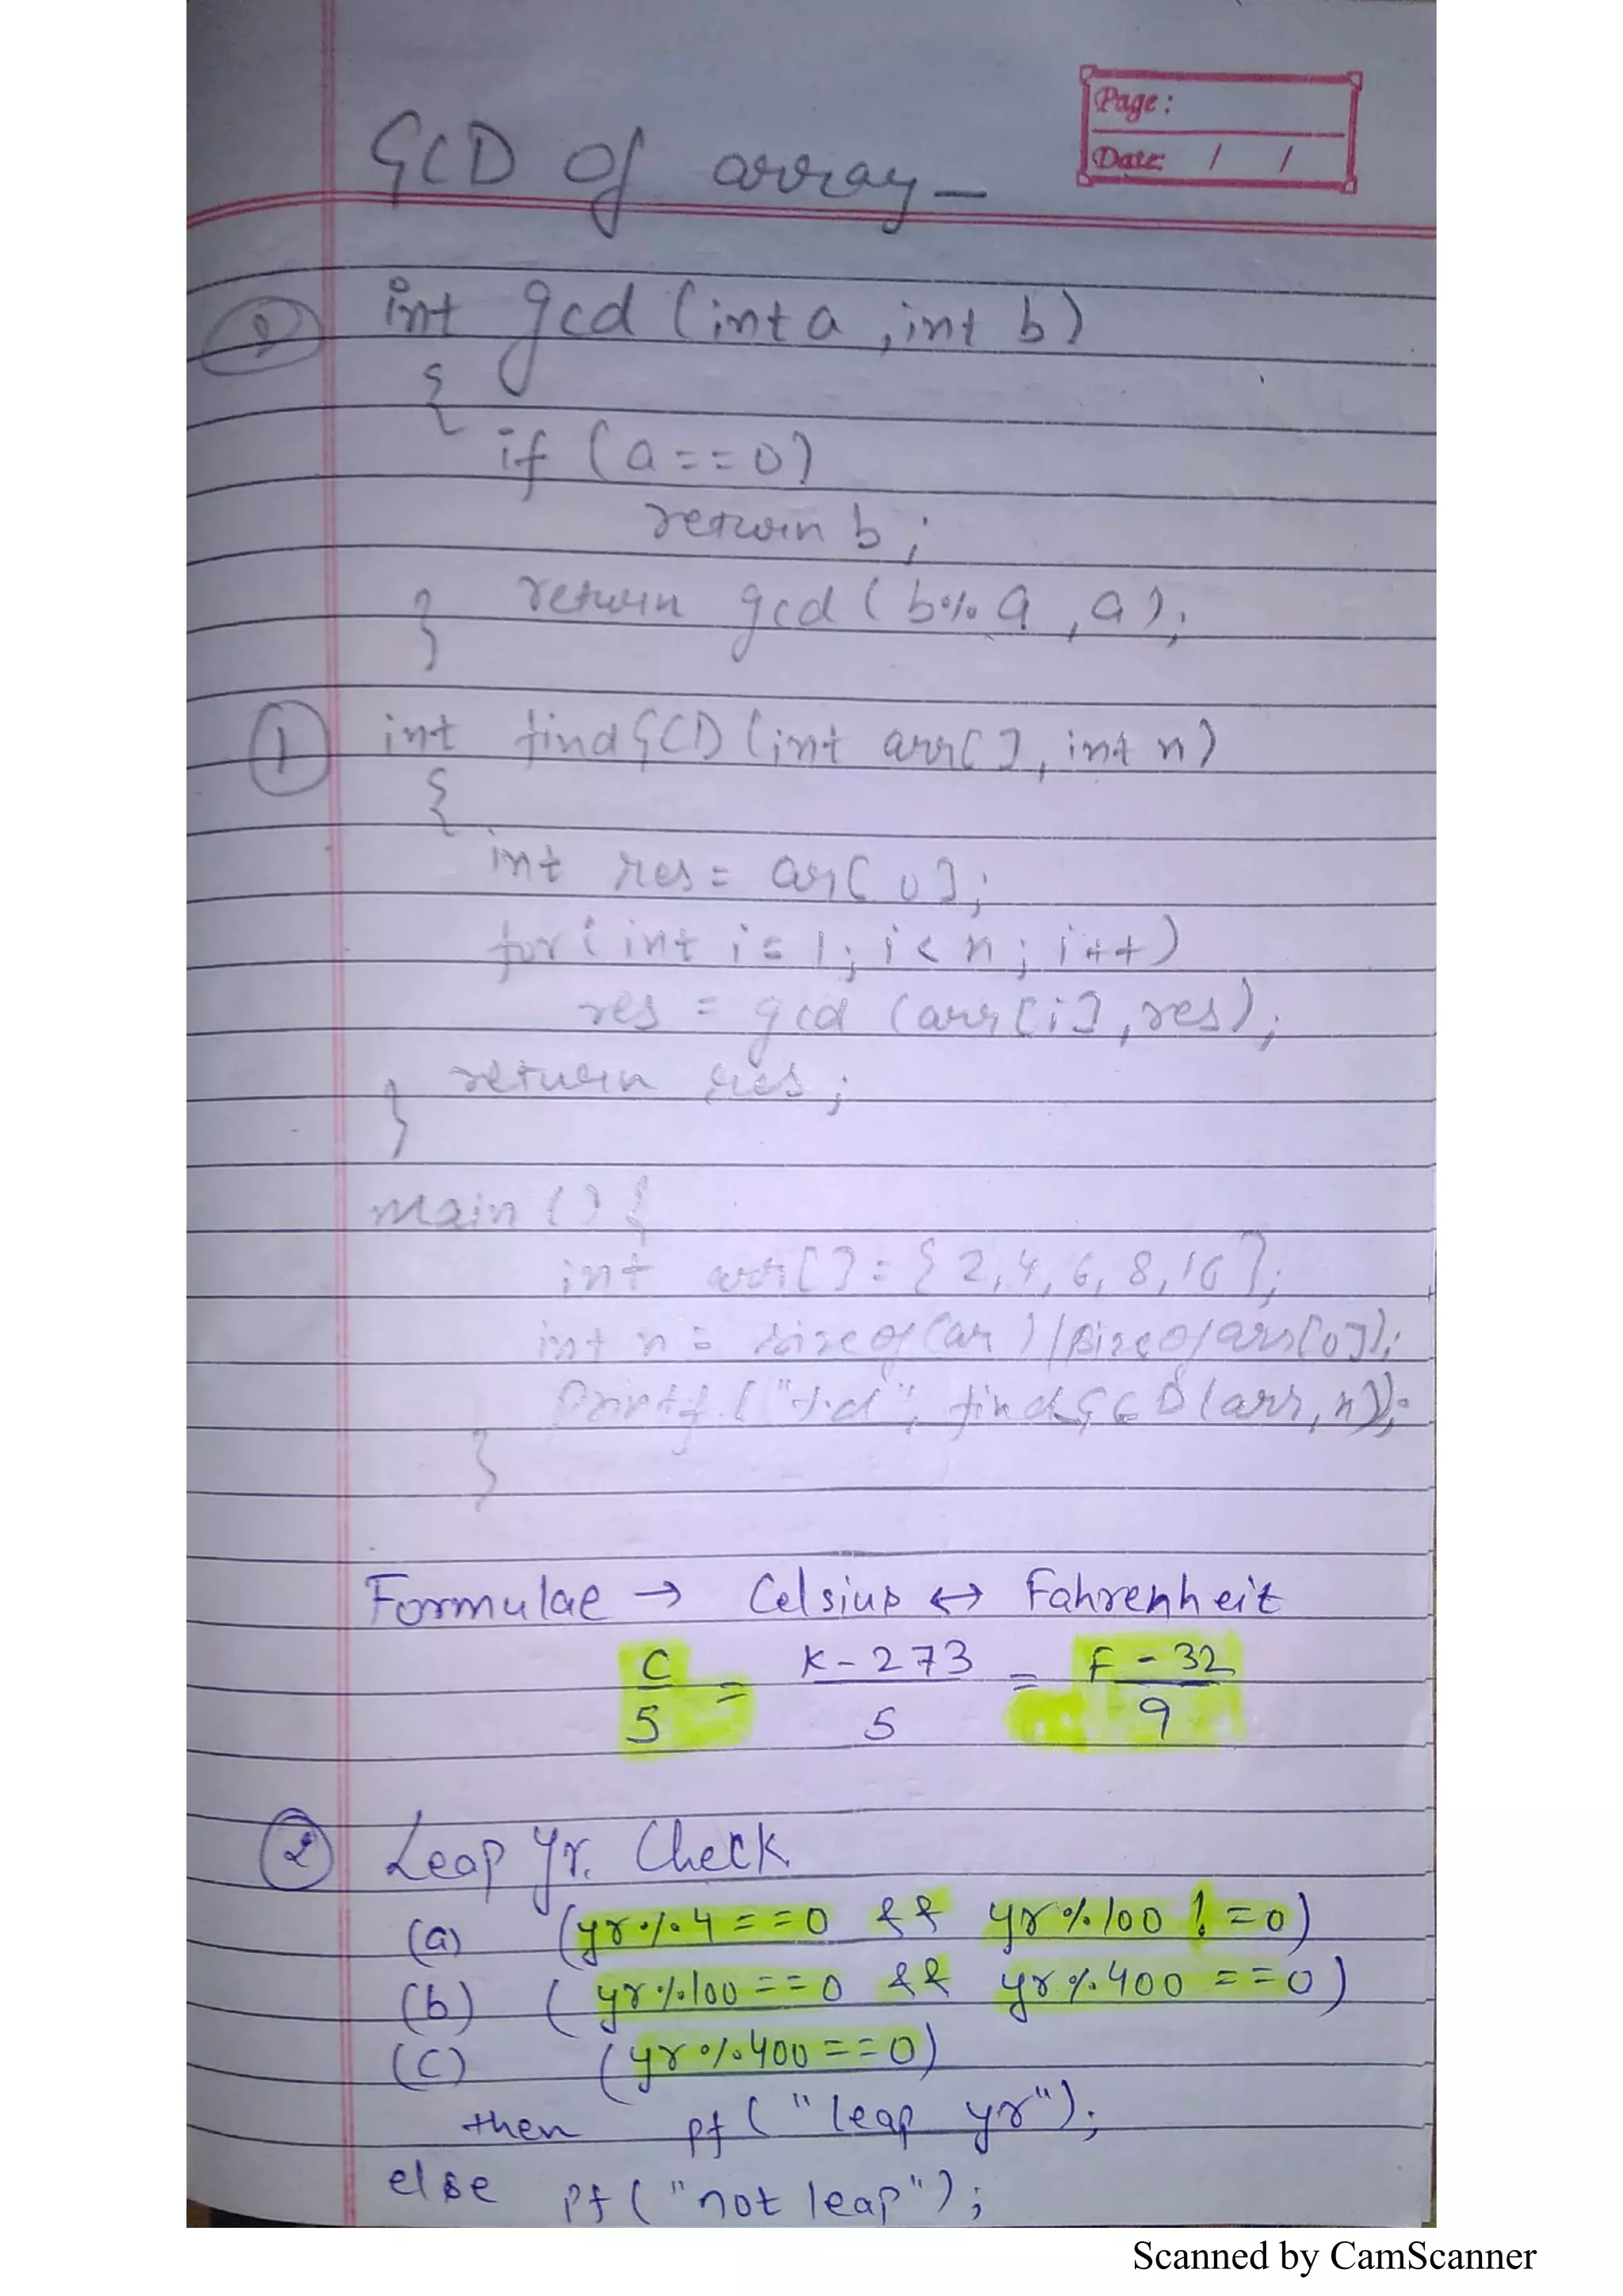 Page:
Date: / /
GCD of array-
int gcd (int a, int b)
{
if (a==0)
return b;
return gcd (b%a, a);
}
① int findGCD (int arr[], int n)
{
int res = arr[0];
for (int i=1; i<n; i++)
res = gcd (arr[i], res);
return res;
}
main () {
int arr[] = {2,4,6,8,16};
int n = sizeof(arr)/sizeof arr[0]);
printf ("%d", findGCD(arr,n));
}
Formulae → Celsius ↔ Fahrenheit
C/5 = K-273/5 = F-32/9
② Leap Yr. Check
(a) (yr%4==0 && yr%100 !=0)
(b) (yr%100==0 && yr%400==0)
(c) (yr%400==0)
then pf ("leap yr");
else pf ("not leap");
Scanned by CamScanner